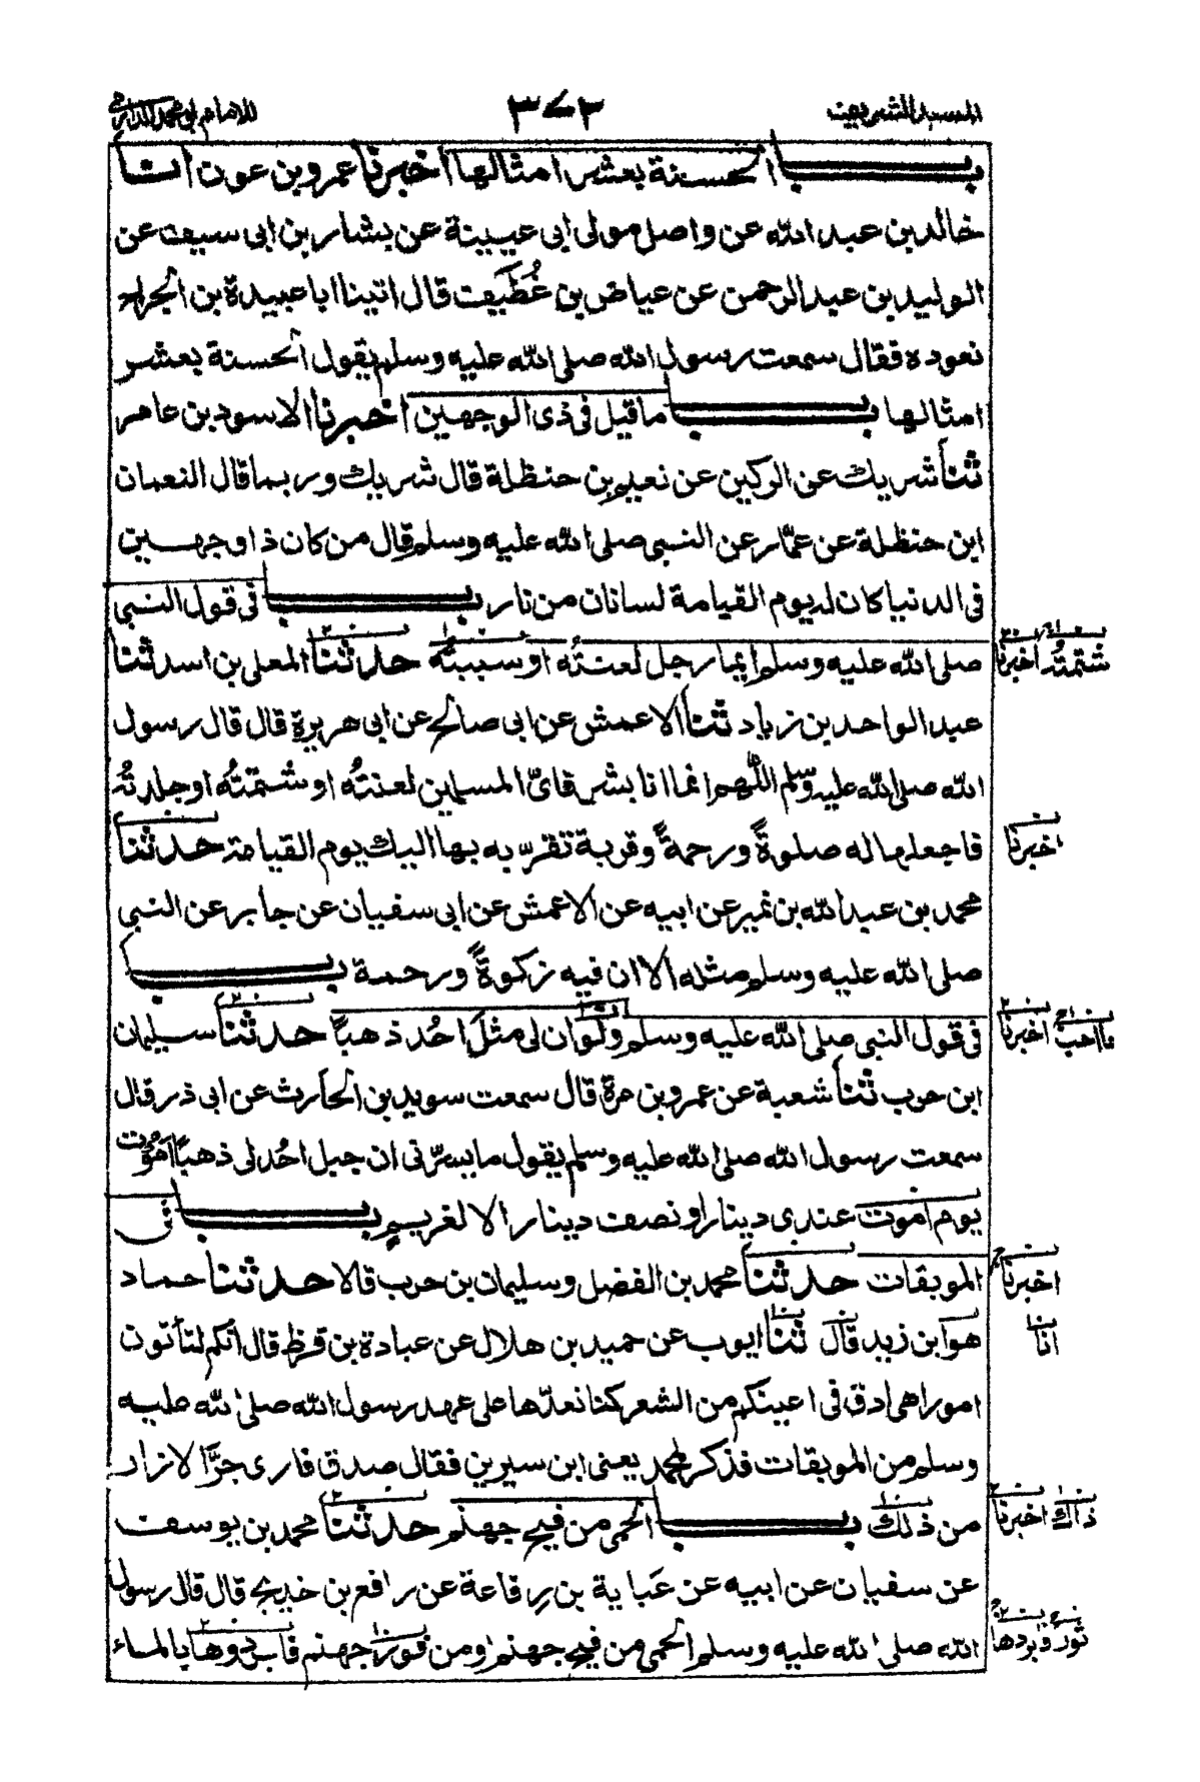 المسند الشريف ٣٧٢ للامام ابی محمد الدارمی
بـــاب الحسنة بعشر امثالها اخبرنا عمرو بن عون انا
خالد بن عبد الله عن واصل مولى ابی عيينة عن بشار بن ابی سيف عن
الوليد بن عبد الرحمن عن عياض بن غُطَيف قال اتينا ابا عبيدة بن الجراح
نعوده فقال سمعت رسول الله صلى الله عليه وسلم يقول الحسنة بعشر
امثالها بـــاب ما قيل فی ذی الوجهين اخبرنا الاسود بن عامر
ثنا شريك عن الركين عن نعيم بن حنظلة قال شريك وربما قال النعمان
ابن حنظلة عن عمّار عن النبی صلى الله عليه وسلم قال من كان ذا وجهين
فی الدنيا كان له يوم القيامة لسانان من نار بـــاب فی قول النبی
صلى الله عليه وسلم ايما رجل لعنتُه او سببتُه حدثنا المعلى بن اسد ثنا
شتمتُه اخبرنا
عبد الواحد بن زياد ثنا الاعمش عن ابی صالح عن ابی هريرة قال قال رسول
الله صلى الله عليه وسلم اللّٰهم انما انا بشر فایّ المسلمين لعنتُه او شتمتُه او جلدتُه
فاجعلها له صلوةً ورحمةً وقربة تقرّبه بها اليك يوم القيامة حدثنا
اخبرنا
محمد بن عبد الله بن نمير عن ابيه عن الاعمش عن ابی سفيان عن جابر عن النبی
صلى الله عليه وسلم مثله الا ان فيه زكوةً ورحمة بـــاب
فی قول النبی صلى الله عليه وسلم ولو ان لی مثلَ احُد ذهبًا حدثنا سليمان
ما احب اخبرنا
ابن حرب ثنا شعبة عن عمرو بن مرة قال سمعت سويد بن الحارث عن ابی ذر قال
سمعت رسول الله صلى الله عليه وسلم يقول ما يسرّنی ان جبل احُد لی ذهبًا اموت
يوم اموت عندی دينار او نصف دينار الا لغريم بـــاب فی
الموبقات حدثنا محمد بن الفضل وسليمان بن حرب قالا حدثنا حماد
اخبرنا
هو ابن زيد قال ثنا ايوب عن حميد بن هلال عن عبادة بن قرظ قال انكم لتأتون
انا
امورا هی ادق فی اعينكم من الشعر كنا نعدّها على عهد رسول الله صلى الله عليه
وسلم من الموبقات فذكر لمحمد يعنی ابن سيرين فقال صدق فاری جرَّ الازار
من ذلك بـــاب الحمى من فيح جهنم حدثنا محمد بن يوسف
ذاك اخبرنا
عن سفيان عن ابيه عن عَباية بن رِفاعة عن رافع بن خديج قال قال رسول
الله صلى الله عليه وسلم الحمى من فيح جهنم او من فور جهنم فابردوها بالماء
ثور